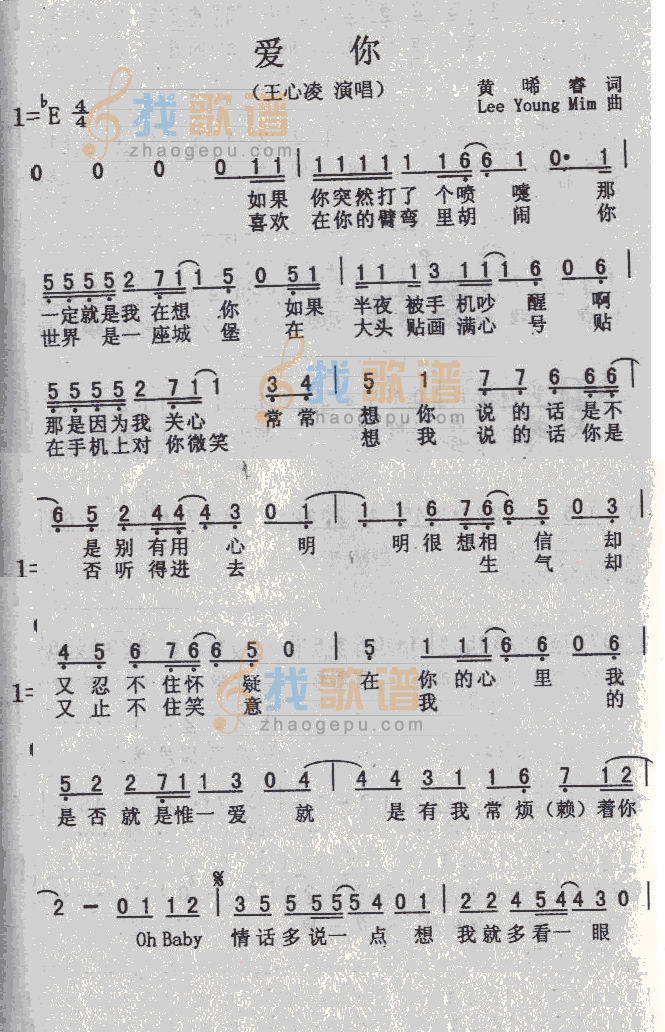 爱 你
（王心凌 演唱）
黄 唏 睿 词
Lee Young Mim 曲
1=♭E 4/4
找歌谱
zhaogepu.com
0 0 0 0 1 1 | 1 1 1 1 1 1 6 6 1 0· 1 |
如果 你突然打了 个喷 嚏 那
喜欢 在你的臂弯 里胡 闹 你
5 5 5 5 2 7 1 1 5 0 5 1 | 1 1 1 3 1 1 1 6 0 6 |
一定就是我 在想 你 如果 半夜 被手 机吵 醒 啊
世界 是一 座城 堡 在 大头 贴画 满心 号 贴
5 5 5 5 2 7 1 1 3 4 | 5 1 7 7 6 6 6
那是因为我 关心 常常 想 你 说的 话 是不
在手机上对 你微笑 想 我 说的 话 你是
找歌谱
6 5 2 4 4 4 3 0 1 | 1 1 6 7 6 6 5 0 3 |
是 别 有用 心 明 明很想相 信 却
1= 否 听 得进 去 生 气 却
4 5 6 7 6 6 5 0 | 5 1 1 1 6 6 0 6 |
又 忍 不 住怀 疑 在 你 的心 里 我
1= 又 止 不 住笑 意 我 的
找歌谱
zhaogepu.com
5 2 2 7 1 1 3 0 4 | 4 4 3 1 1 6 7 1 2
是 否 就 是惟一 爱 就 是 有 我 常 烦（赖）着你
2 - 0 1 1 2 | 3 5 5 5 5 5 4 0 1 | 2 2 4 5 4 4 3 0 |
Oh Baby 情 话 多 说一 点 想 我 就 多 看一 眼